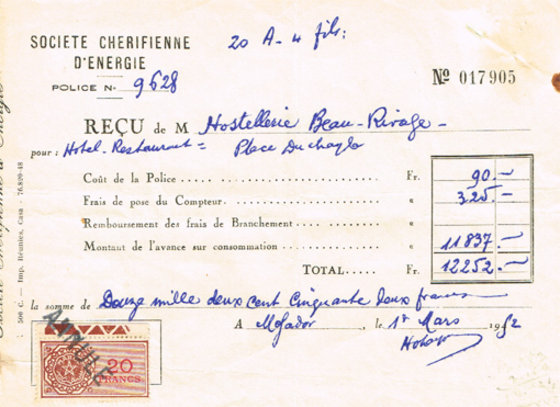 SOCIETE CHERIFIENNE
D'ENERGIE
20 A - 4 fils:
POLICE N° 9628
Nº 017905
REÇU de M Hostellerie Beau-Rivage -
pour: Hotel-Restaurant = Place Duchayla
Coût de la Police ..... Fr. 90.-
Frais de pose du Compteur. « 325.-
Remboursement des frais de Branchement .... «
Montant de l'avance sur consommation .... « 11837.-
TOTAL..... Fr. 12252.-
la somme de Douze mille deux cent cinquante deux francs
A Mogador, le 1er Mars 1952
ANNULÉ
20
FRANCS
500 C. — Imp. Réunies, Casa 76.829-48